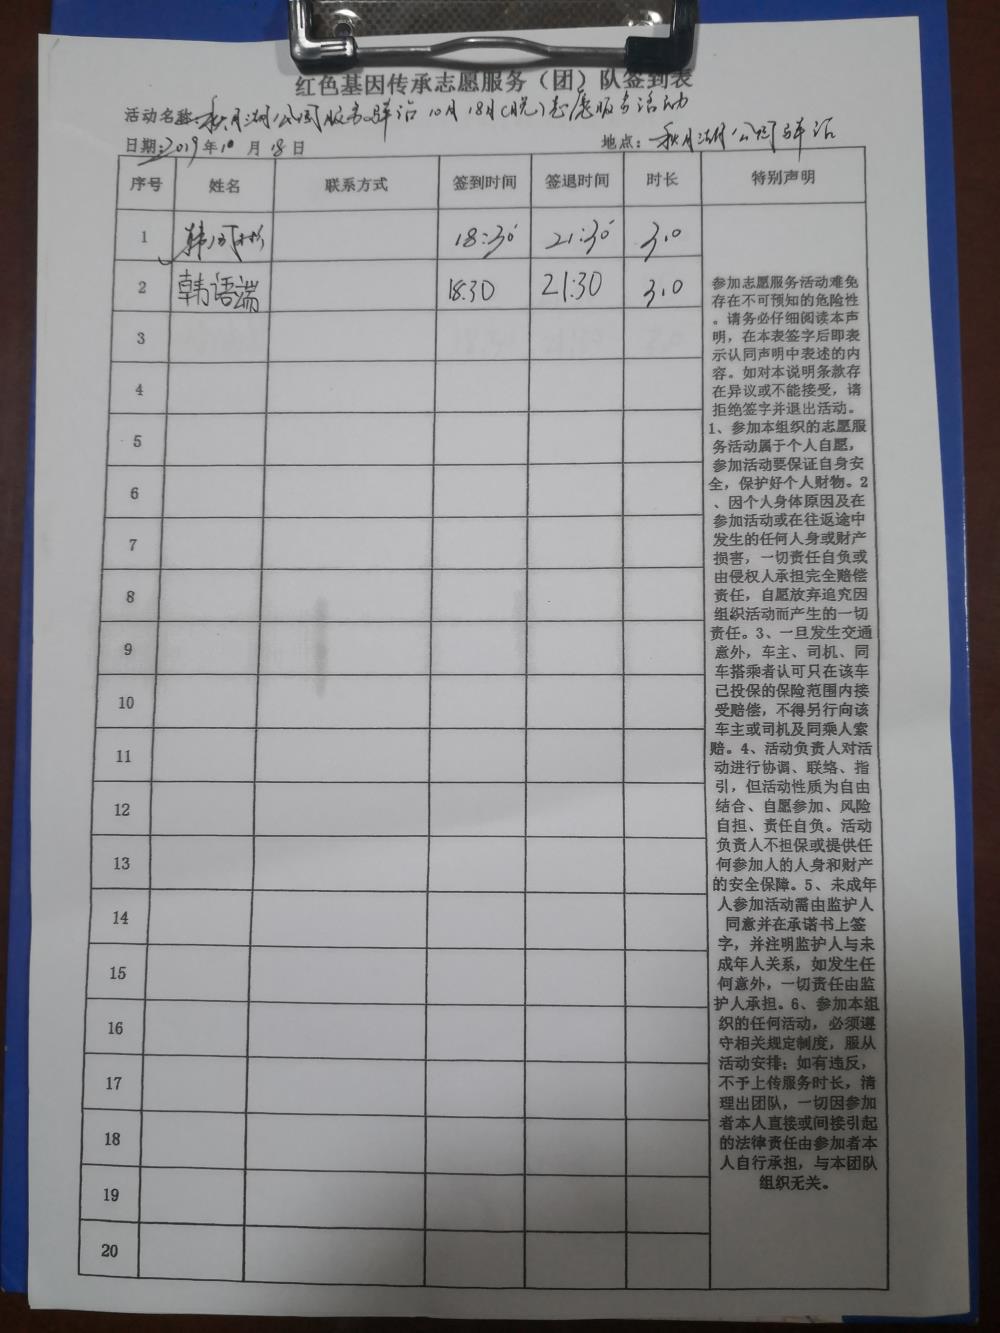 红色基因传承志愿服务（团）队签到表
活动名称：秋月湖公园服务驿站10月18日（晚）志愿服务活动
日期：2019年10月18日 地点：秋月湖公园驿站
序号 姓名 联系方式 签到时间 签退时间 时长 特别声明
1 韩 彬 18:30 21:30 3.0
2 韩语端 18:30 21:30 3.0
3
4
5
6
7
8
9
10
11
12
13
14
15
16
17
18
19
20
参加志愿服务活动难免
存在不可预知的危险性
。请务必仔细阅读本声
明，在本表签字后即表
示认同声明中表述的内
容。如对本说明条款存
在异议或不能接受，请
拒绝签字并退出活动。
1、参加本组织的志愿服
务活动属于个人自愿，
参加活动要保证自身安
全，保护好个人财物。2
、因个人身体原因及在
参加活动或在往返途中
发生的任何人身或财产
损害，一切责任自负或
由侵权人承担完全赔偿
责任，自愿放弃追究因
组织活动而产生的一切
责任。3、一旦发生交通
意外，车主、司机、同
车搭乘者认可只在该车
已投保的保险范围内接
受赔偿，不得另行向该
车主或司机及同乘人索
赔。4、活动负责人对活
动进行协调、联络、指
引，但活动性质为自由
结合、自愿参加、风险
自担、责任自负。活动
负责人不担保或提供任
何参加人的人身和财产
的安全保障。5、未成年
人参加活动需由监护人
同意并在承诺书上签
字，并注明监护人与未
成年人关系，如发生任
何意外，一切责任由监
护人承担。6、参加本组
织的任何活动，必须遵
守相关规定制度，服从
活动安排；如有违反，
不予上传服务时长，清
理出团队，一切因参加
者本人直接或间接引起
的法律责任由参加者本
人自行承担，与本团队
组织无关。